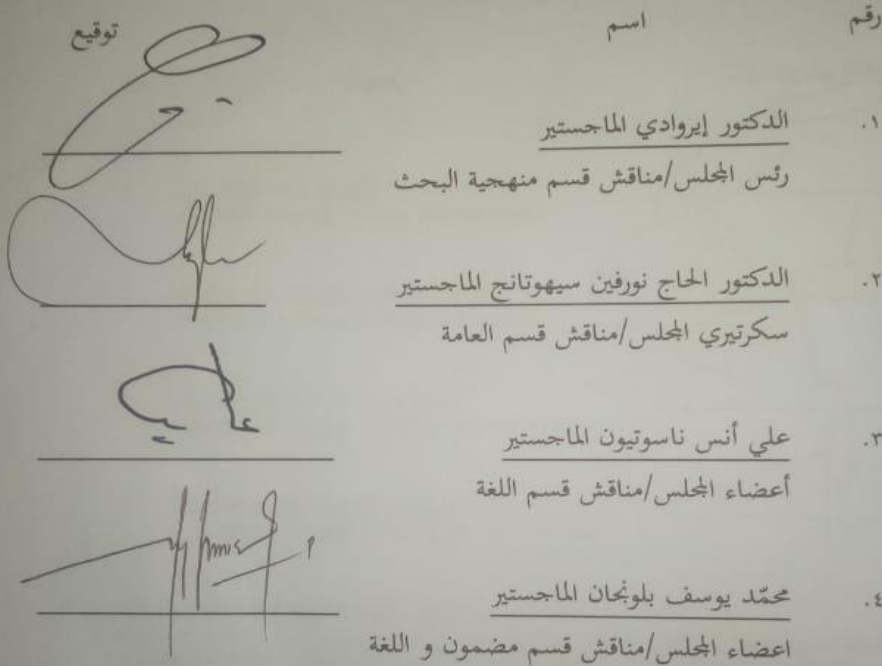 رقم اسم توقيع
١. الدكتور إيروادي الماجستير
رئس المجلس/مناقش قسم منهجية البحث
٢. الدكتور الحاج نورفين سيهوتانج الماجستير
سكرتيري المجلس/مناقش قسم العامة
٣. علي أنس ناسوتيون الماجستير
أعضاء المجلس/مناقش قسم اللغة
٤. محمّد يوسف بلونجان الماجستير
اعضاء المجلس/مناقش قسم مضمون و اللغة